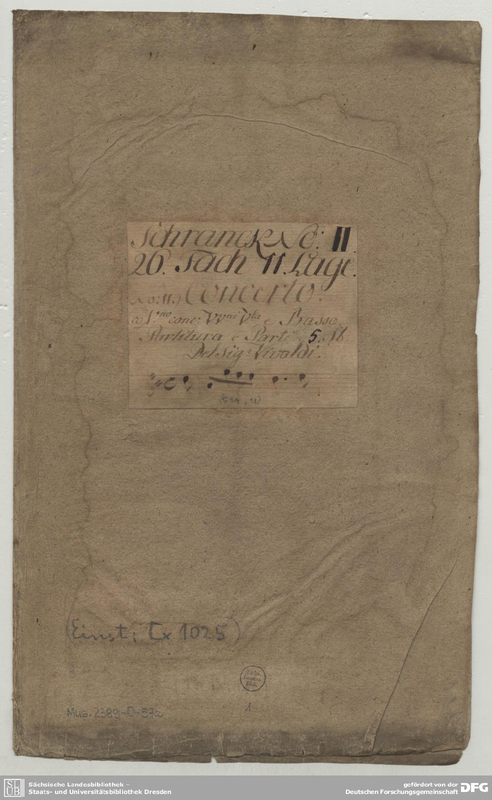 Schranck No: II.
26. Fach 11. Lage.
No: 11.) Concerto.
co V.no conc: VV.ni V.la e Basso.
Partitura e Parti 5. St
Del Sig.r Vivaldi.
(Einst: Cx 1025)
1
Mus. 2389-O-
Sächsische Landesbibliothek –
Staats- und Universitätsbibliothek Dresden
gefördert von der
Deutschen Forschungsgemeinschaft DFG